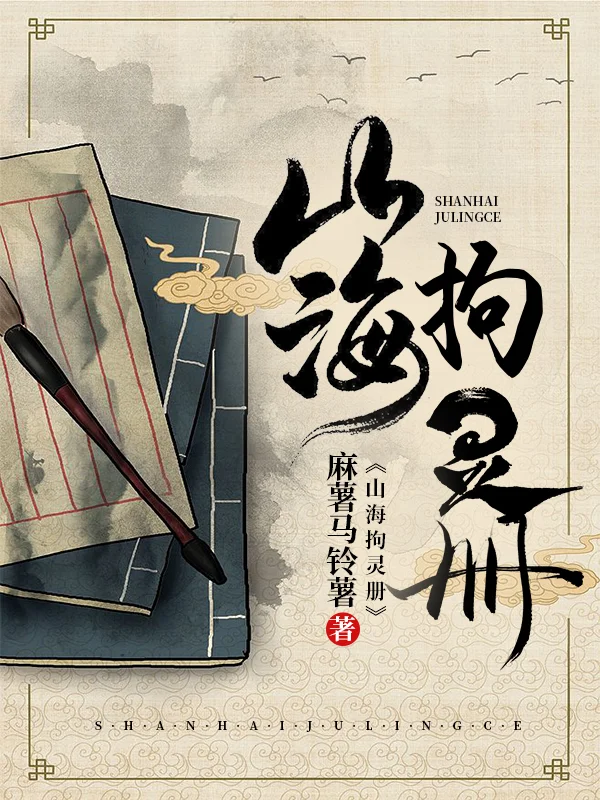 山海
拘灵册
SHANHAI
JULINGCE
《山海拘灵册》
麻薯马铃薯 著
S·H·A·N·H·A·I·J·U·L·I·N·G·C·E